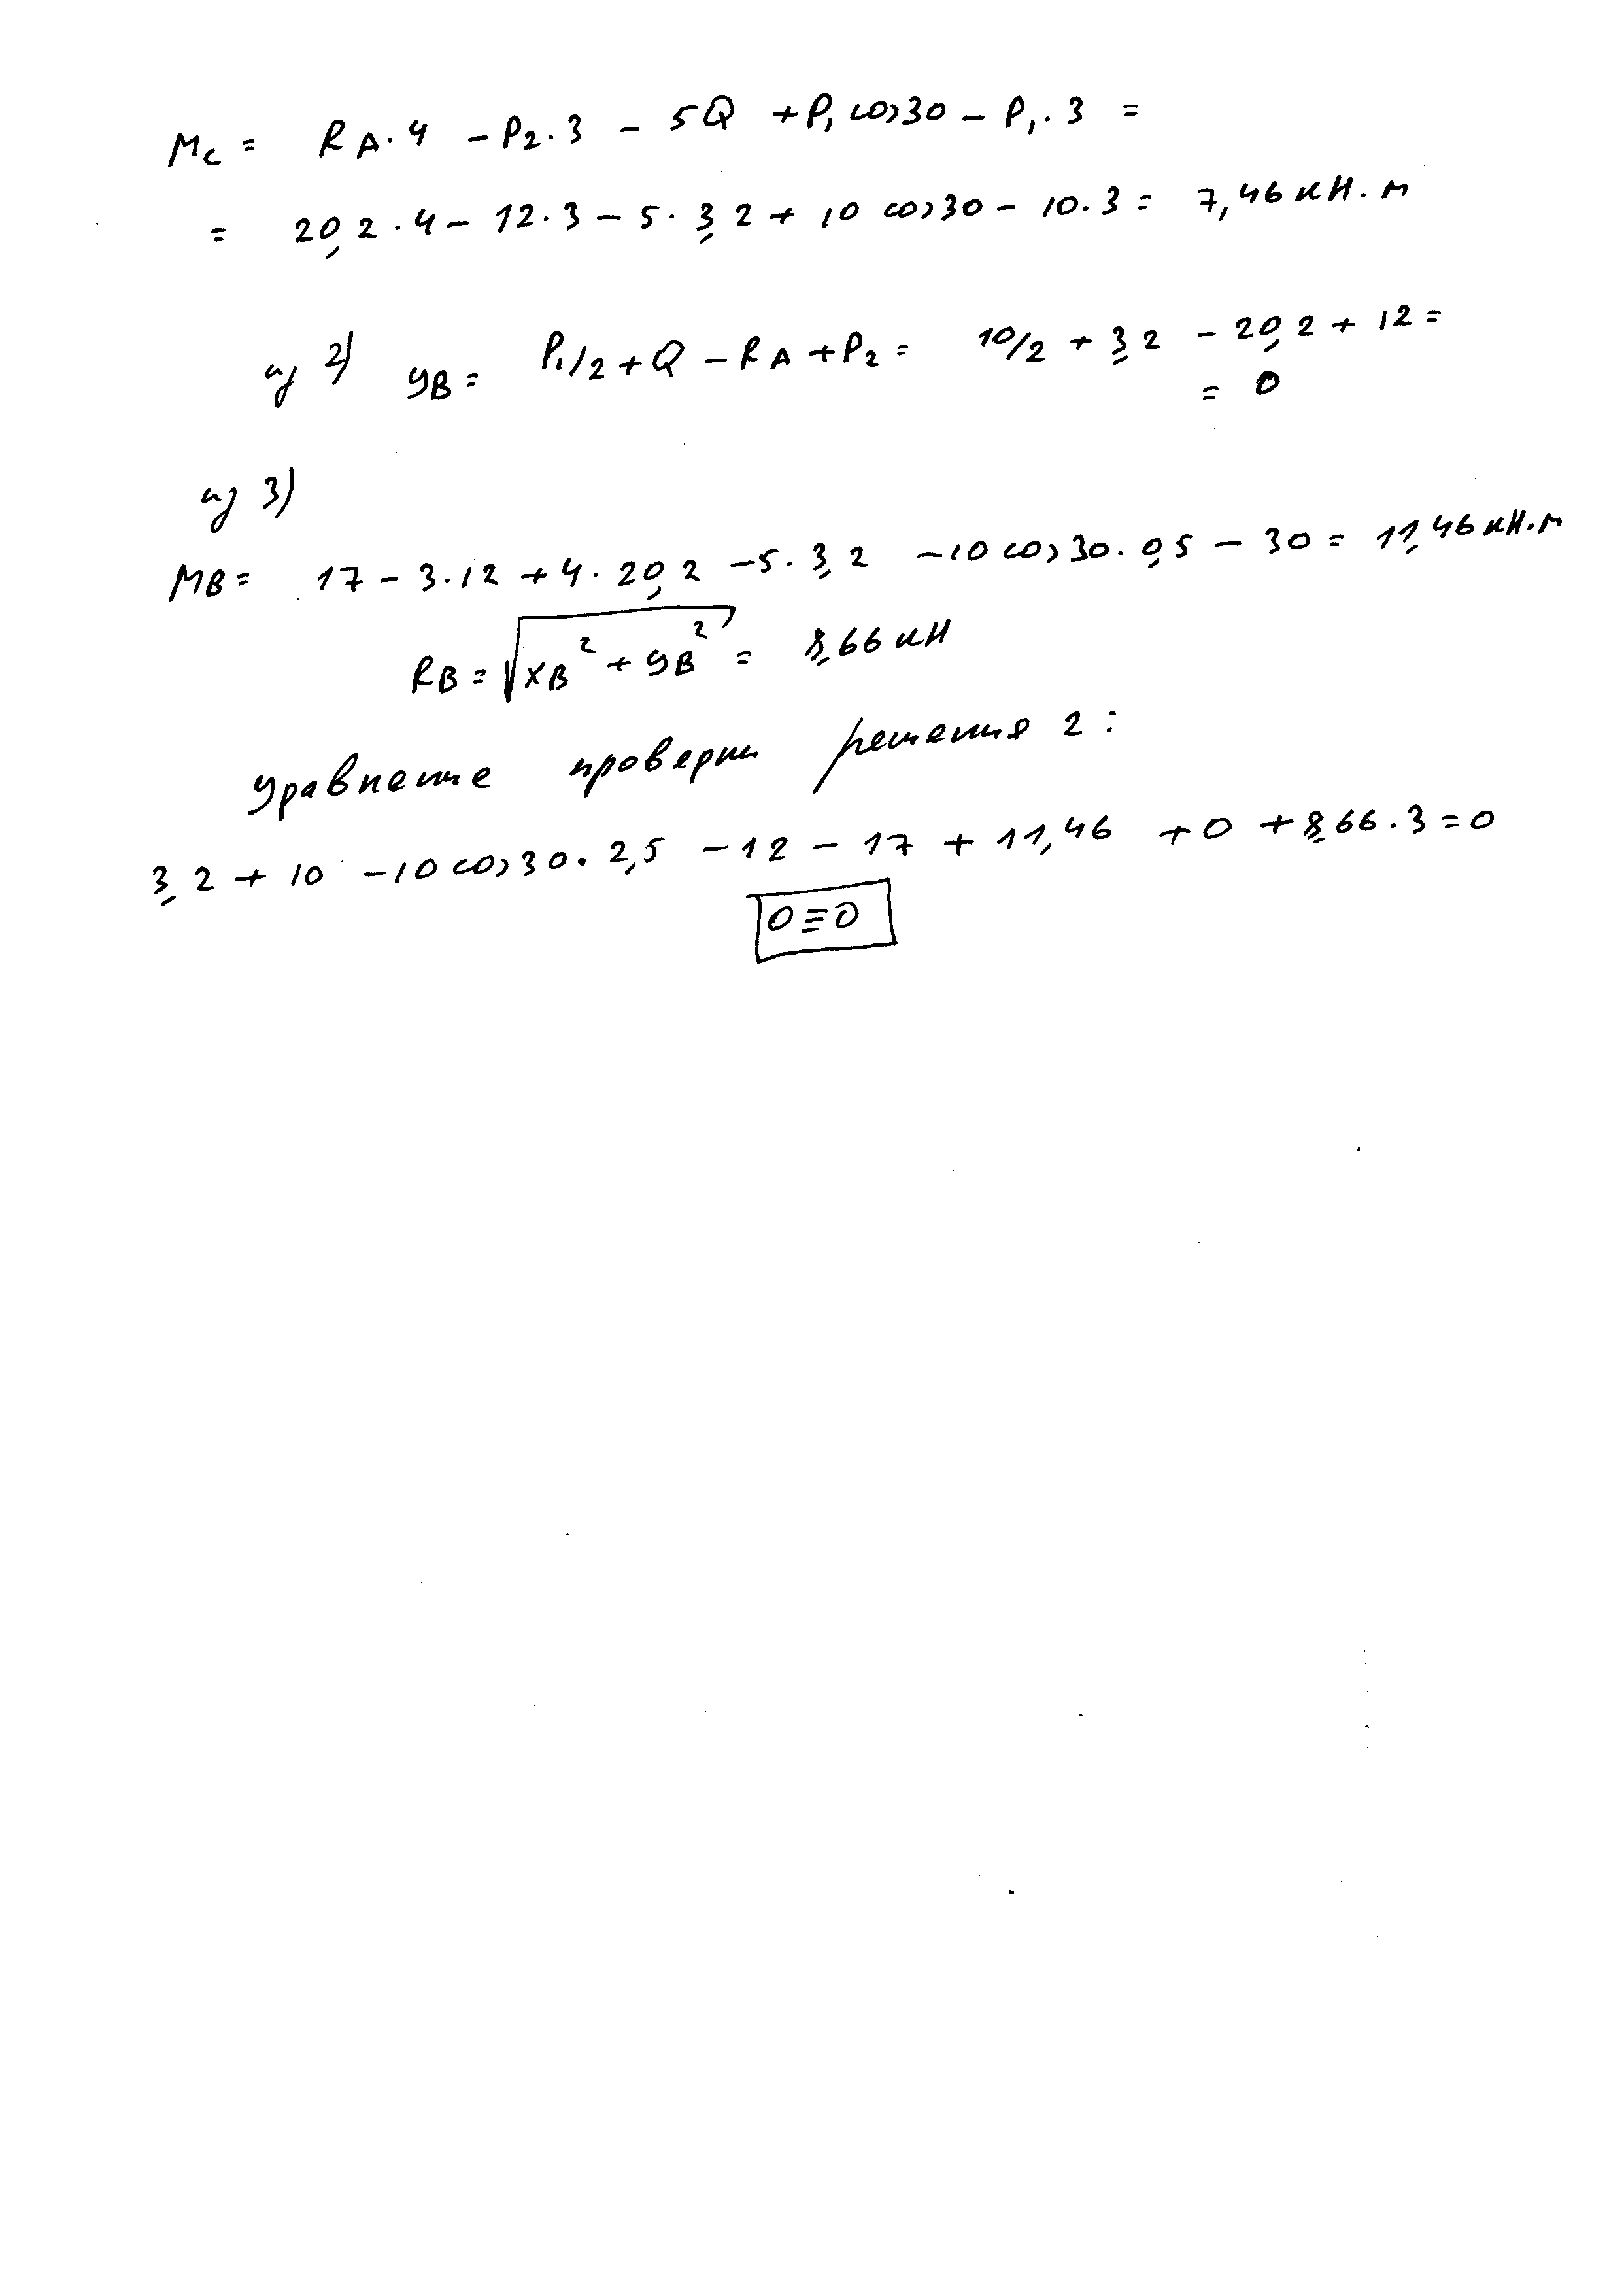 Mc = RA·4 - P2·3 - 5Q + P1 cos30 - P1·3 =
= 20,2·4 - 12·3 - 5·3,2 + 10 cos30 - 10·3 = 7,46 кН·м
из 2) yB = P1/2 + Q - RA + P2 = 10/2 + 3,2 - 20,2 + 12 =
= 0
из 3)
MB = 17 - 3·12 + 4·20,2 - 5·3,2 - 10 cos30·0,5 - 30 = 11,46 кН·м
RB = √(xB² + yB²) = 8,66 кН
Уравнение проверки решения 2:
3,2 + 10 - 10 cos30·2,5 - 12 - 17 + 11,46 + 0 + 8,66·3 = 0
0 ≡ 0